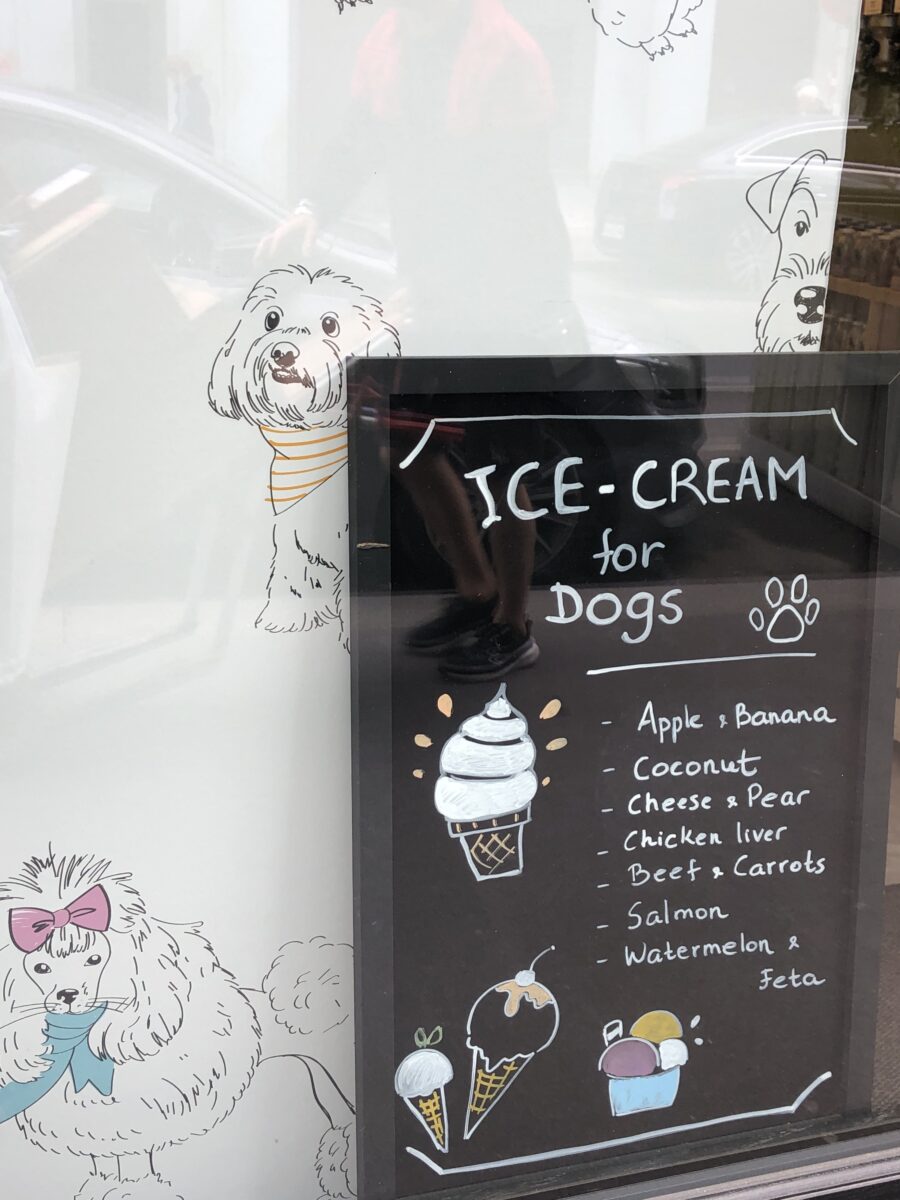 ICE-CREAM
for
Dogs
- Apple & Banana
- Coconut
- Cheese & Pear
- Chicken liver
- Beef & Carrots
- Salmon
- Watermelon &
Feta